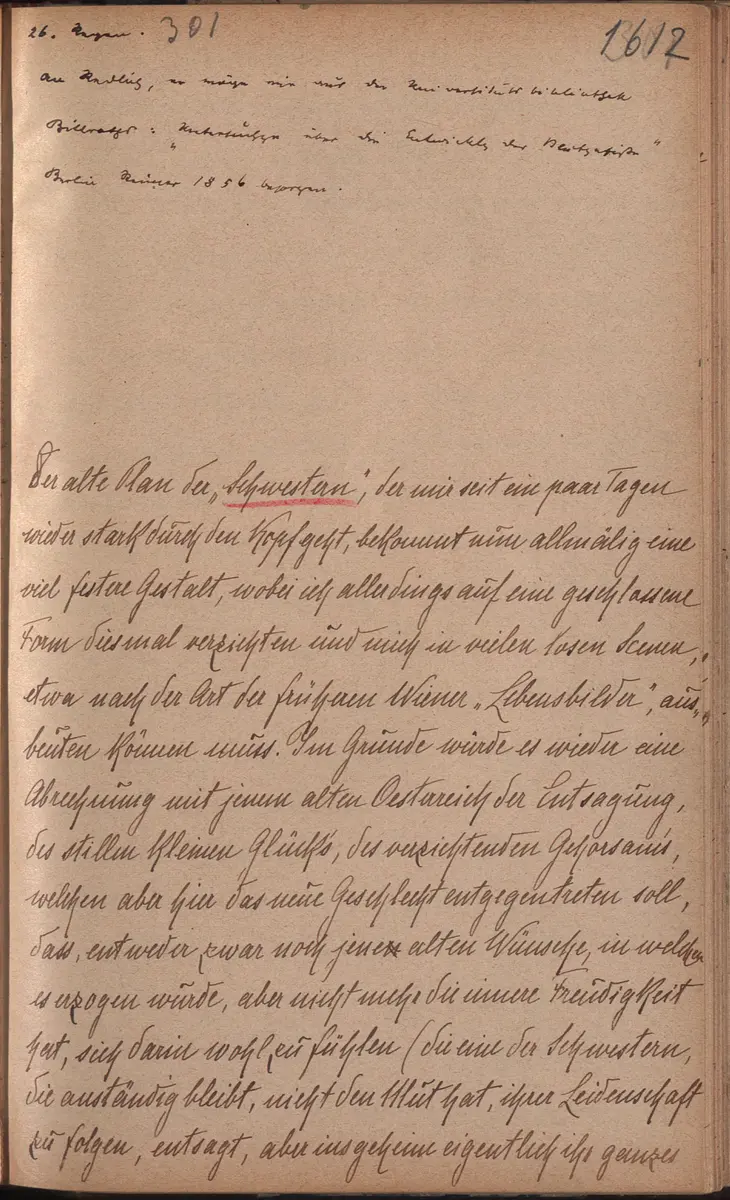 26. Regen. 301
1612
an Redlich, er möge mir aus der Universitätsbibliothek
Billroths: „Untersuchgen über die Entwicklg der Blutgefäße“
Berlin Reimer 1856 besorgen.
Der alte Plan der „Schwestern“, der mir seit ein paar Tagen
wieder stark durch den Kopf geht, bekommt nun allmälig eine
viel festere Gestalt, wobei ich allerdings auf eine geschlossene
Form diesmal verzichten und mich in vielen losen Scenen,
etwa nach der Art der früheren Wiener „Lebensbilder“, aus-
beuten können muss. Im Grunde würde es wieder eine
Abrechnung mit jenem alten Oesterreich der Entsagung,
des stillen kleinen Glücks, des verzichtenden Gehorsams,
welchen aber hier das neue Geschlecht entgegentreten soll,
dass, entweder zwar noch jene alten Wünsche, in welchen
es erzogen wurde, aber nicht mehr die innere Freudigkeit
hat, sich darin wohl zu fühlen (die eine der Schwestern,
die anständig bleibt, nicht den Mut hat, ihrer Leidenschaft
zu folgen, entsagt, aber insgeheim eigentlich ihr ganzes